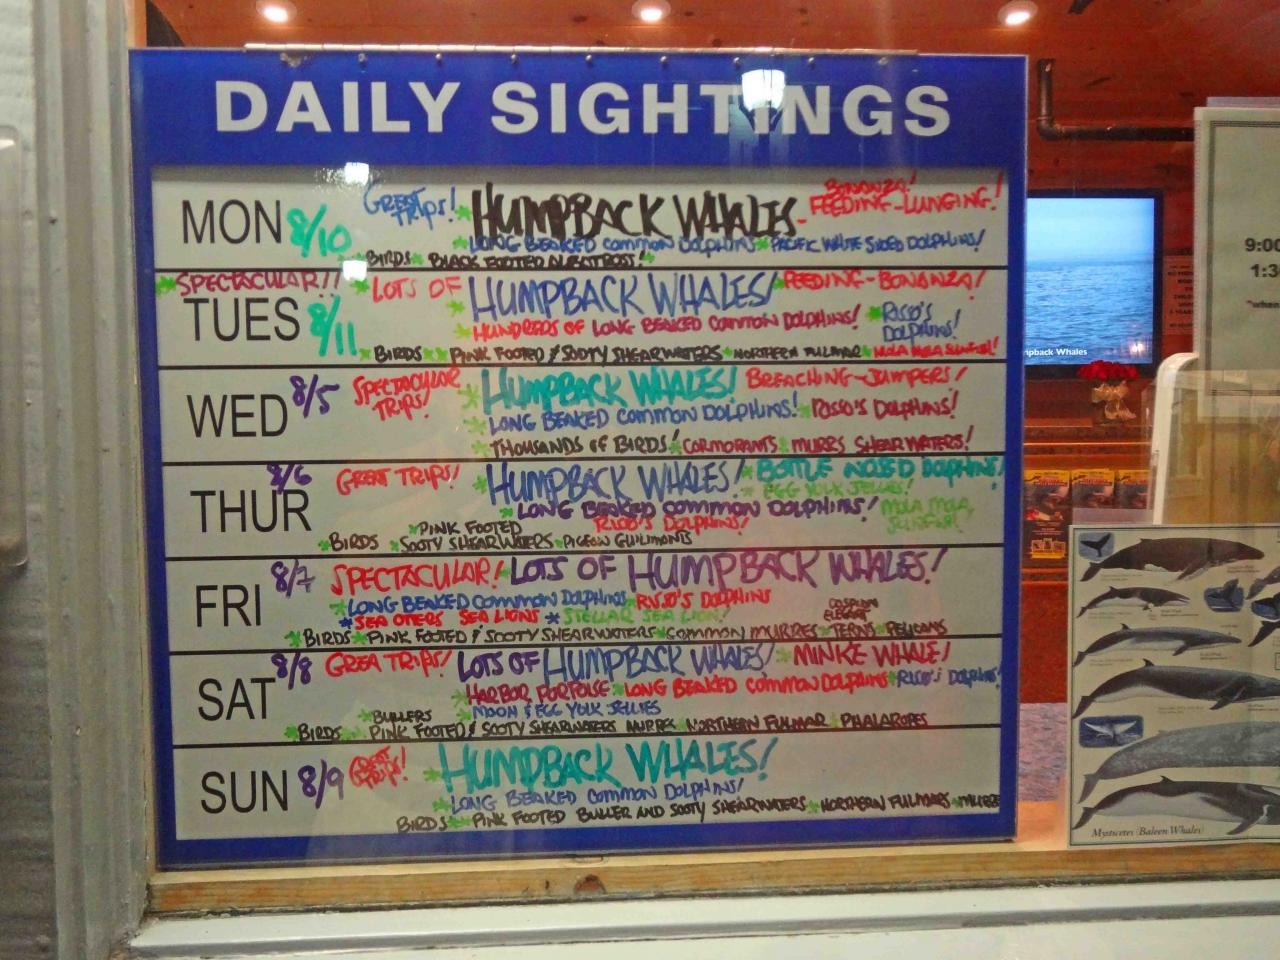 DAILY SIGHTINGS
MON 8/10 GREAT TRIPS! HUMPBACK WHALES - BONANZA! FEEDING-LUNGING!
LONG BEAKED COMMON DOLPHINS PACIFIC WHITE SIDED DOLPHINS!
BIRDS BLACK FOOTED ALBATROSS!
SPECTACULAR!! LOTS OF HUMPBACK WHALES! FEEDING-BONANZA!
TUES 8/11 HUNDREDS OF LONG BEAKED COMMON DOLPHINS! RISSO'S DOLPHINS!
BIRDS PINK FOOTED & SOOTY SHEARWATERS NORTHERN FULMAR MOLA MOLA SUNFISH!
WED 8/5 SPECTACULAR TRIPS! HUMPBACK WHALES! BREACHING-JUMPERS!
LONG BEAKED COMMON DOLPHINS! RISSO'S DOLPHINS!
THOUSANDS OF BIRDS! CORMORANTS MURRS SHEARWATERS!
THUR 8/6 GREAT TRIPS! HUMPBACK WHALES! BOTTLE NOSED DOLPHINS!
EGG YOLK JELLIES!
LONG BEAKED COMMON DOLPHINS! MOLA MOLA
PINK FOOTED RISSO'S DOLPHINS!
BIRDS SOOTY SHEARWATERS PIGEON GUILIMONTS
FRI 8/7 SPECTACULAR! LOTS OF HUMPBACK WHALES!
LONG BEAKED COMMON DOLPHINS RISSO'S DOLPHINS
SEA OTTERS SEA LIONS STELLAR SEA LION! CASPIAN ELEGANT
BIRDS PINK FOOTED & SOOTY SHEARWATERS COMMON MURRES TERNS PELICANS
SAT 8/8 GREA TRIPS! LOTS OF HUMPBACK WHALES! MINKE WHALE!
HARBOR PORPOISE LONG BEAKED COMMON DOLPHINS RISSO'S DOLPHINS!
BULLERS MOON & EGG YOLK JELLIES
BIRDS PINK FOOTED & SOOTY SHEARWATERS MURRES NORTHERN FULMAR PHALAROPES
SUN 8/9 GREAT TRIPS! HUMPBACK WHALES!
LONG BEAKED COMMON DOLPHINS!
BIRDS PINK FOOTED BULLER AND SOOTY SHEARWATERS NORTHERN FULMARS MURRE
pback Whales
9:00
1:3
Mysticetes (Baleen Whales)